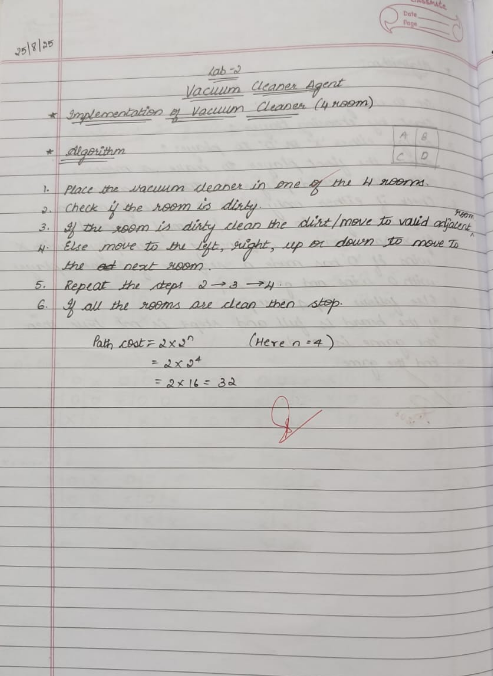 classmate
Date
Page
25/8/25
Lab-2
Vacuum Cleaner Agent
* Implementation of Vacuum Cleaner (4 room)
A B
C D
* Algorithm
1. Place the vacuum cleaner in one of the 4 rooms.
2. Check if the room is dirty.
3. If the room is dirty clean the dirt/move to valid adjatent room.
4. Else move to the left, right, up or down to move to
the next room.
5. Repeat the steps 2 → 3 → 4
6. If all the rooms are clean then stop.
Path cost = 2 × 2ⁿ (Here n = 4)
= 2 × 2⁴
= 2 × 16 = 32